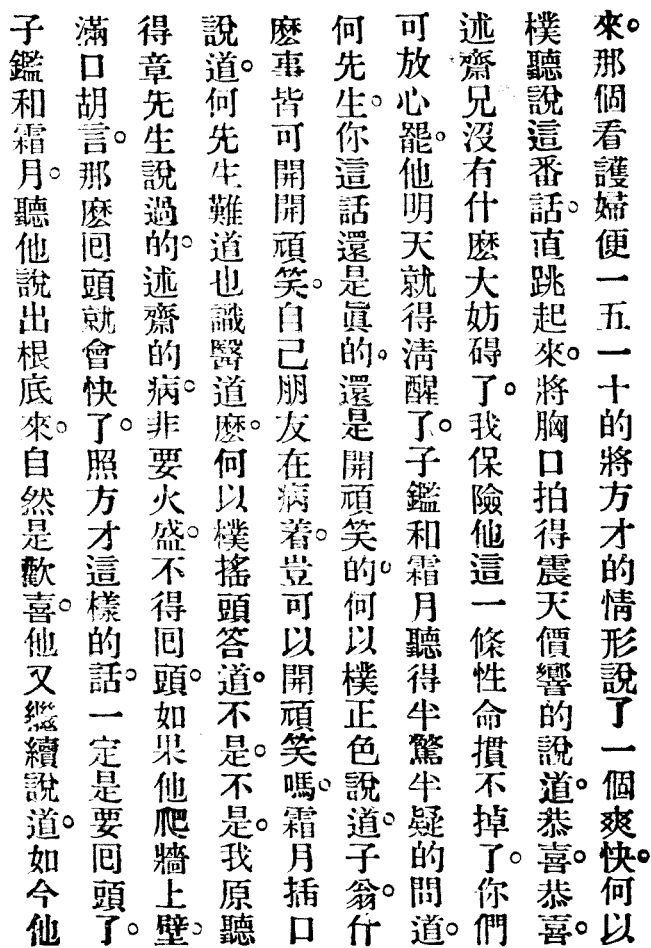 來。那個看護婦便一五一十的將方才的情形說了一個爽快。何以
樸聽說這番話。直跳起來。將胸口拍得震天價響的說道。恭喜。恭喜。
述齋兄沒有什麽大妨碍了。我保險他這一條性命摜不掉了。你們
可放心罷。他明天就得淸醒了。子鑑和霜月聽得半驚半疑的問道。
何先生。你這話還是眞的。還是開頑笑的。何以樸正色說道。子翁。什
麽事皆可開開頑笑。自己朋友在病着。豈可以開頑笑嗎。霜月插口
說道。何先生難道也識醫道麽。何以樸搖頭答道。不是。不是。我原聽
得章先生說過的。述齋的病。非要火盛。不得囘頭。如果他爬牆上壁。
滿口胡言。那麽囘頭就會快了。照方才這樣的話。一定是要囘頭了。
子鑑和霜月。聽他說出根底來。自然是歡喜。他又繼續說道。如今他